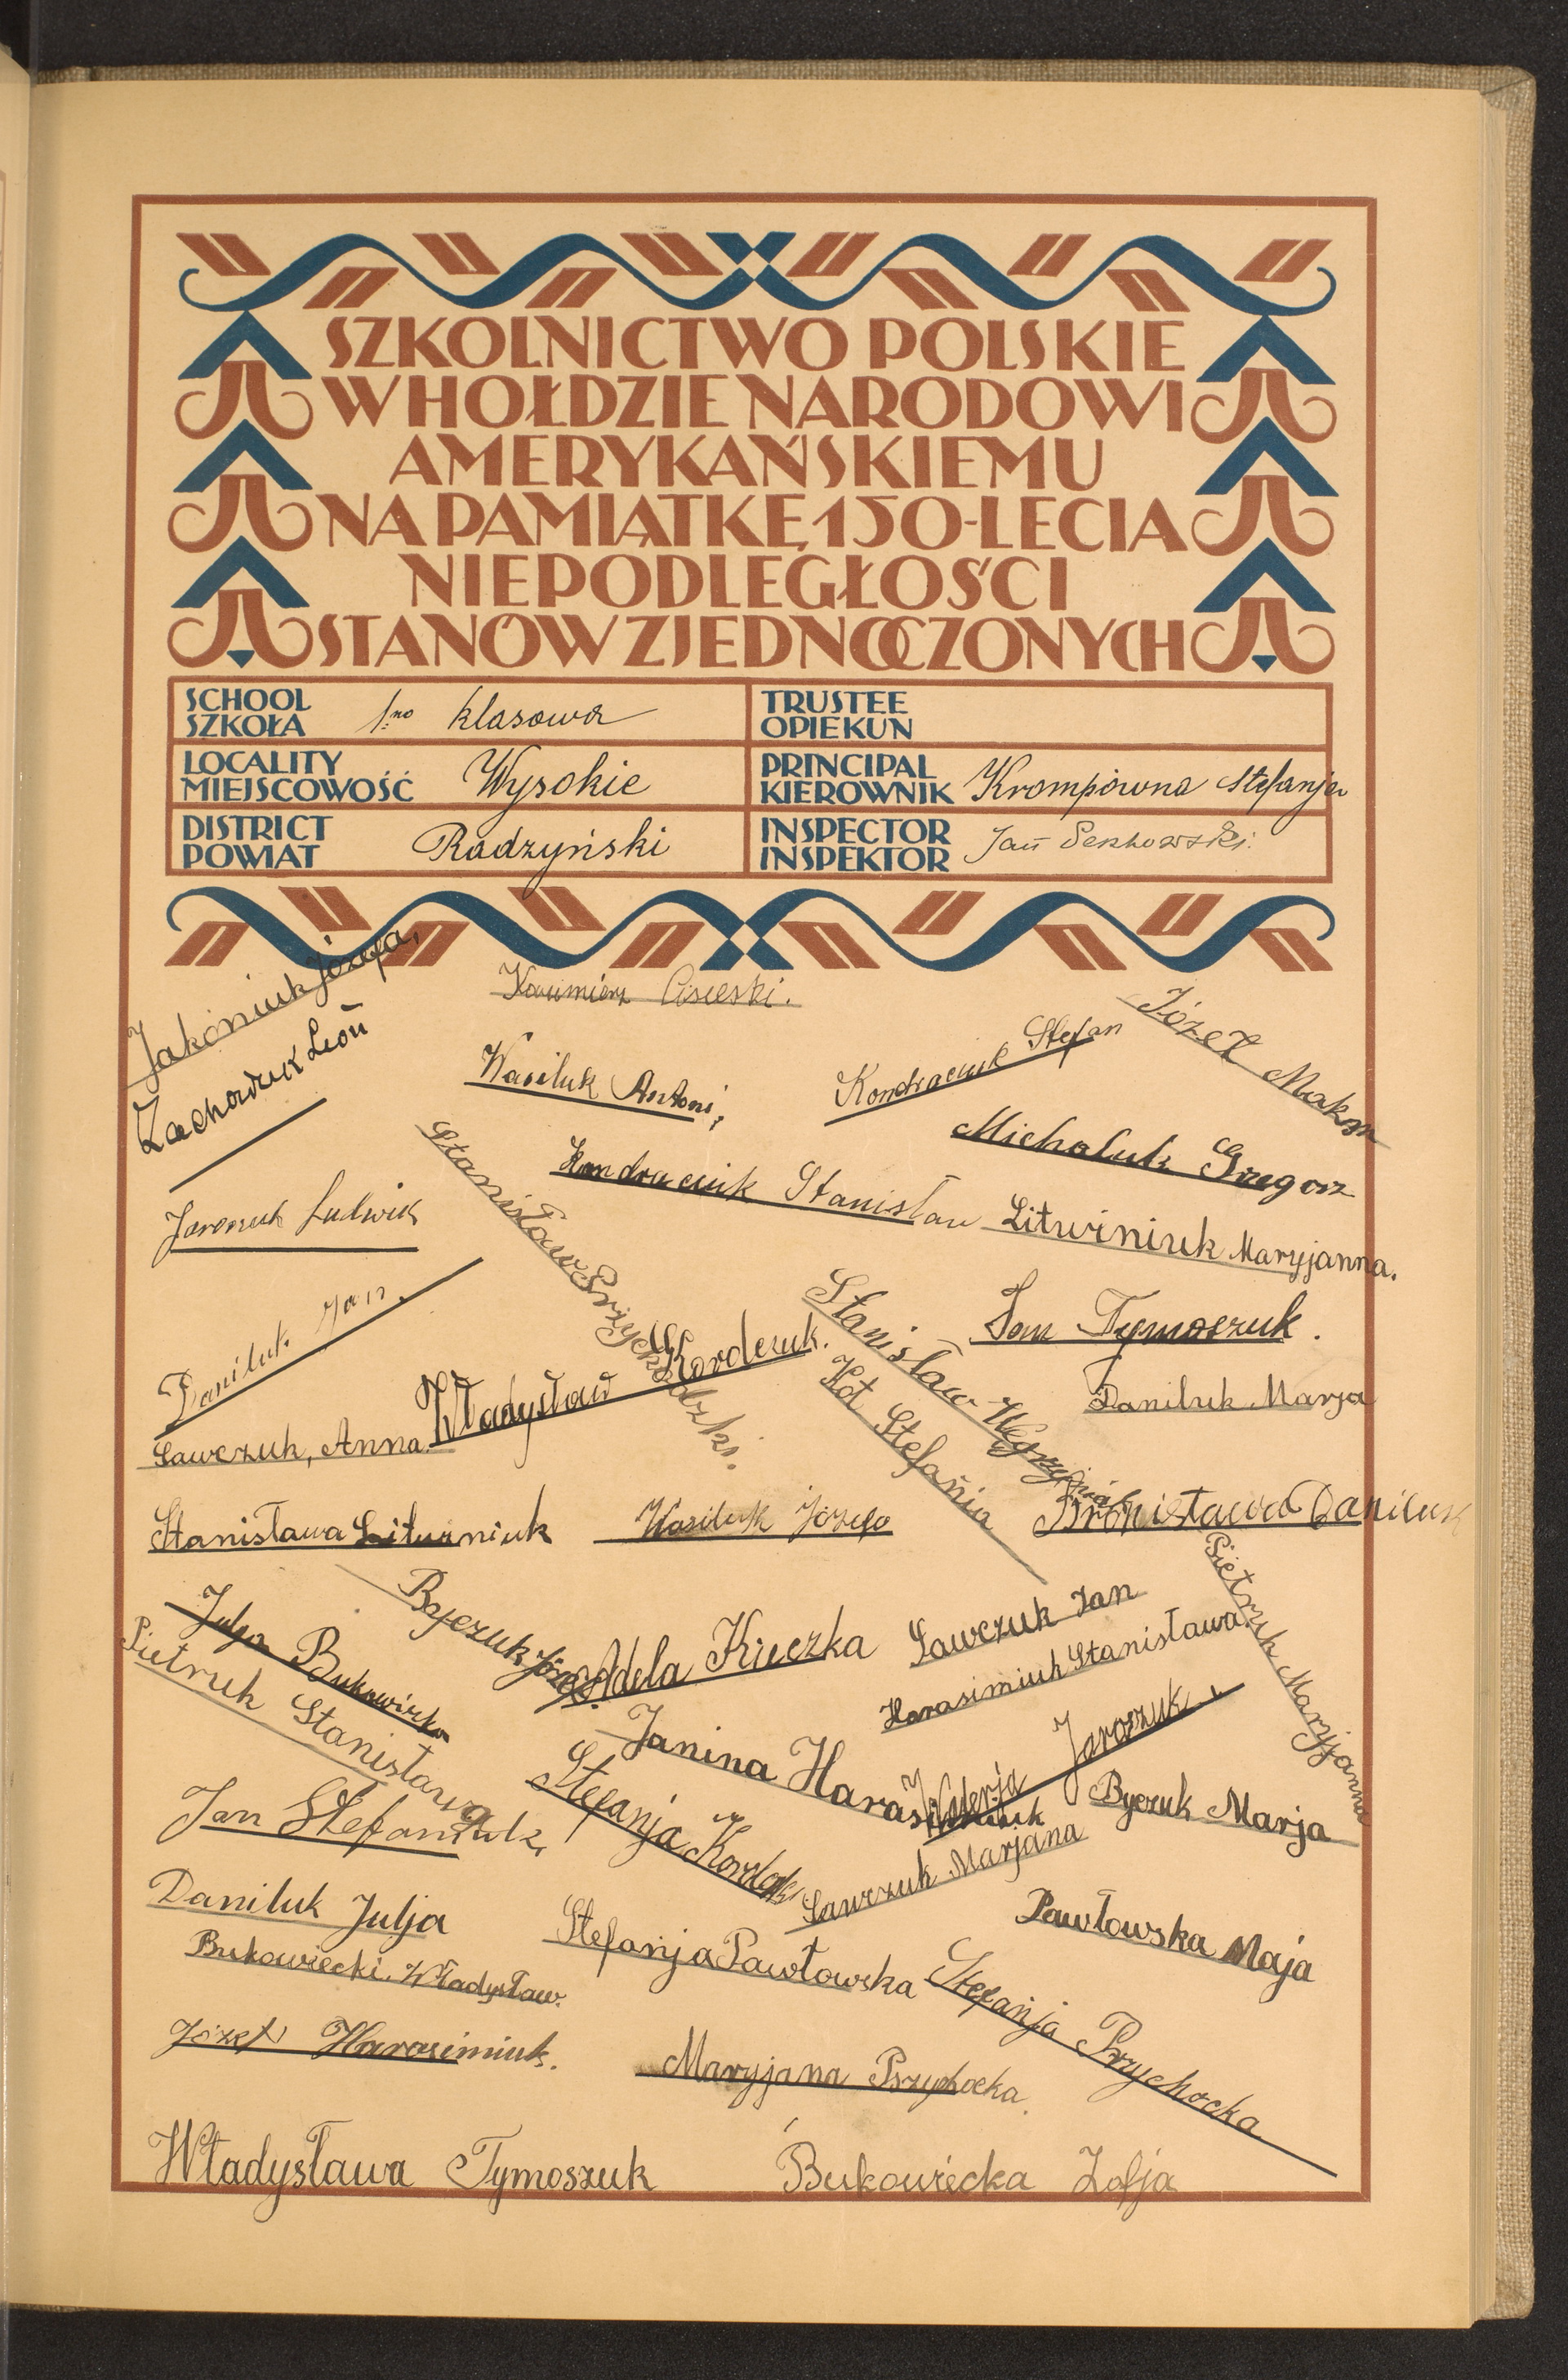 SZKOLNICTWO POLSKIE
W HOŁDZIE NARODOWI
AMERYKAŃSKIEMU
NA PAMIĄTKĘ 150-LECIA
NIEPODLEGŁOŚCI
STANÓW ZJEDNOCZONYCH
SCHOOL
SZKOŁA
1no klasowa
TRUSTEE
OPIEKUN
LOCALITY
MIEJSCOWOŚĆ
Wysokie
PRINCIPAL
KIEROWNIK
Krompiowna Stefanja
DISTRICT
POWIAT
Radzyński
INSPECTOR
INSPEKTOR
Jan
Jakoniuk Józefa,
Kazimierz
Józef Maksm
Zachowuk Leon
Wasiluk Antoni,
Kondraciuk Stefan
Michaluk Grzegorz
Kondraciuk Stanisław
Jaroszuk Ludwik
Litwiniuk Maryjanna.
Stanisław Przychodzki.
Daniluk Jan.
Jan Tymoszuk.
Władysław Kordczuk.
Stanisław Węgrzyniak
Kot Stefania
Daniluk Marja
Sawczuk, Anna
Stanisława Litwiniuk
Wasiluk Józefa
Bronisława Daniluk
Julja
Bajczuk Józef.
Adela Kreczka
Sawczuk Jan
Pietruk Maryjanna
Pietruk Stanisława
Harasimiuk Stanisława
Janina Harasimiuk
Walerja Jaroszuk
Jan Stefaniuk,
Stefanja
Byczuk Marja
Sawczuk Marjana
Daniluk Julja
Pawłowska Maja
Stefanja Pawłowska
Bukowiecki, Władysław.
Stefanja Przychocka
Józef Harasimiuk.
Maryjana Przychocka.
Władysława Tymoszuk
Bukowiecka Zofja